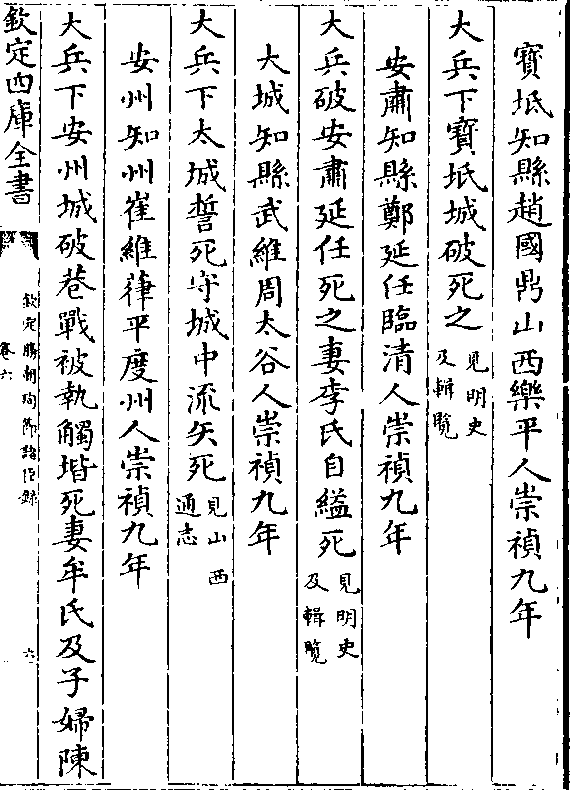 寶坻知縣趙國鼎山西樂平人崇禎九年
大兵下寶坻城破死之見明史
及輯覽
安肅知縣鄭延任臨清人崇禎九年
大兵破安肅延任死之妻李氏自縊死見明史
及輯覽
大城知縣武維周太谷人崇禎九年
大兵下太城誓死守城中流矢死見山西
通志
安州知州崔維葎平度州人崇禎九年
大兵下安州城破巷戰被執觸堦死妻牟氏及子婦陳
欽定四庫全書
欽定勝朝殉節諸臣錄
卷六
六